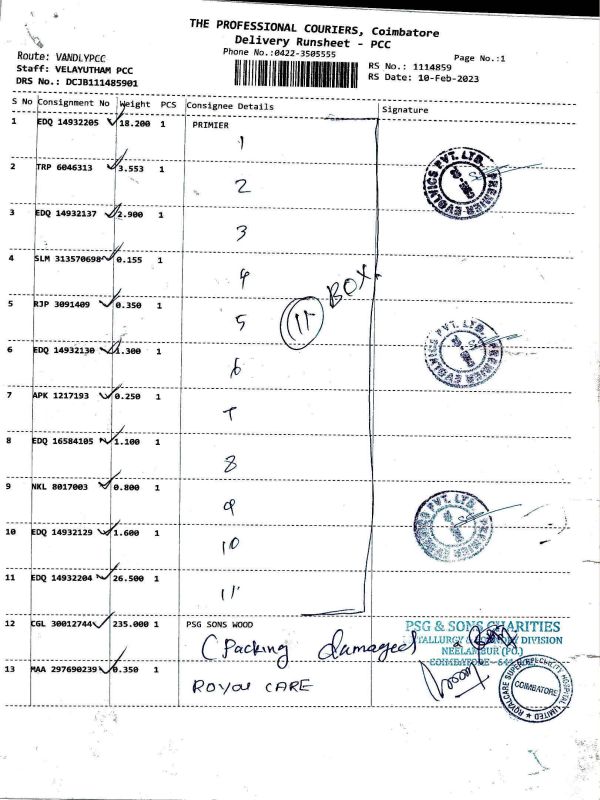 THE PROFESSIONAL COURIERS, Coimbatore
Delivery Runsheet - PCC
Phone No.:0422-3505555
Page No.:1
Route: VANDLYPCC
Staff: VELAYUTHAM PCC
DRS No.: DCJB111485901
RS No.: 1114859
RS Date: 10-Feb-2023
S No Consignment No Weight PCS Consignee Details Signature
1 EDQ 14932205 18.200 1 PRIMIER
1
2 TRP 6046313 3.553 1
2
3 EDQ 14932137 2.900 1
3
4 SLM 313570698 0.155 1
4
5 RJP 3091409 0.350 1
5
11 BOX
6 EDQ 14932130 1.300 1
6
7 APK 1217193 0.250 1
7
8 EDQ 16584105 1.100 1
8
9 NKL 8017003 0.800 1
9
10 EDQ 14932129 1.600 1
10
11 EDQ 14932204 26.500 1
11
PREMIER EVOLVICS PVT. LTD.
PREMIER EVOLVICS PVT. LTD.
PREMIER EVOLVICS PVT. LTD.
12 CGL 30012744 235.000 1 PSG SONS WOOD
(Packing damaged)
PSG & SONS CHARITIES
METALLURGY & FOUNDRY DIVISION
NEELAMBUR (PO.)
COIMBATORE
13 MAA 297690239 0.350 1
Royal CARE
ROYALCARE SUPER SPECIALITY HOSPITAL LIMITED
COIMBATORE